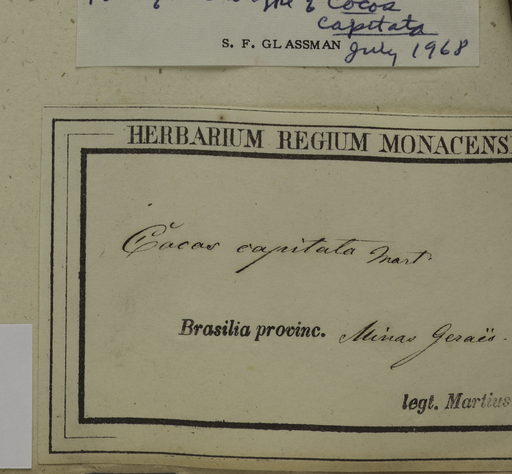 of Cocos
capitata
S. F. GLASSMAN July 1968
HERBARIUM REGIUM MONACENS
Cocos capitata Mart.
Brasilia provinc. Minas Geraës.
legt. Martius